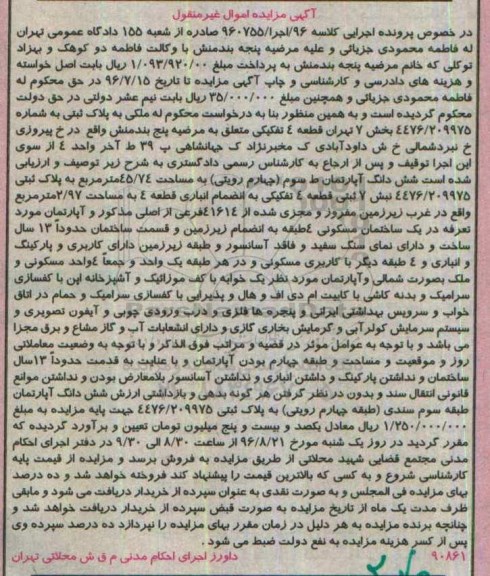 آگهی مزایده اموال غیرمنقول
در خصوص پرونده اجرایی کلاسه ۹۶/اجرا/۹۶۰۷۵۵ صادره از شعبه ۱۵۵ دادگاه عمومی تهران
له فاطمه محمودی جزیانی و علیه مرضیه پنجه بندمنش با وکالت فاطمه دو کوهک و بهزاد
توکلی که خانم مرضیه پنجه بندمنش به پرداخت مبلغ ۱/۰۹۳/۹۲۰/۰۰ ریال بابت اصل خواسته
و هزینه های دادرسی و کارشناسی و چاپ آگهی مزایده تا تاریخ ۹۶/۷/۱۵ در حق محکوم له
فاطمه محمودی جزیانی و همچنین مبلغ ۳۵/۰۰۰/۰۰۰ ریال بابت نیم عشر دولتی در حق دولت
محکوم گردیده است و به همین منظور بنا به درخواست محکوم له ملکی به پلاک ثبتی به شماره
۴۴۷۶/۲۰۹۹۷۵ بخش ۷ تهران قطعه ٤ تفکیکی متعلق به مرضیه پنج بندمنش واقع در خ پیروزی
خ نبردشمالی خ ش داودآبادی ک مخبرنژاد ک جهانشاهی پ ۳۹ ط آخر واحد ٤ از سوی
این اجرا توقیف و پس از ارجاع به کارشناس رسمی دادگستری به شرح زیر توصیف و ارزیابی
شده است شش دانگ آپارتمان ط سوم (چهارم رویتی) به مساحت ۴۵/۷۴مترمربع به پلاک ثبتی
۴۴۷۶/۲۰۹۹۷۵ نبش ۷ ثبتی قطعه ٤ تفکیکی به انضمام انباری قطعه ٤ به مساحت ۲/۹۷مترمربع
واقع در غرب زیرزمین مفروز و مجزی شده از ۴۱۶۱۴فرعی از اصلی مذکور و آپارتمان مورد
تعرفه در یک ساختمان مسکونی ٤طبقه به انضمام زیرزمین و قسمت ساختمان حدوداً ۱۳ سال
ساخت و دارای نمای سنگ سفید و فاقد آسانسور و طبقه زیرزمین دارای کاربری و پارکینگ
و انباری و ٤ طبقه دیگر با کاربری مسکونی و در هر طبقه یک واحد و جمعاً ٤واحد مسکونی و
ملک بصورت شمالی وآپارتمان مورد نظر یک خوابه با کف موزائیک و آشپزخانه اپن با کفسازی
سرامیک و بدنه کاشی با کابینت ام دی اف و هال و پذیرایی با کفسازی سرامیک و حمام در اتاق
خواب و سرویس بهداشتی ایرانی و پنجره ها فلزی و درب ورودی چوبی و آیفون تصویری و
سیستم سرمایش کولرآبی و گرمایش بخاری گازی و دارای انشعابات آب و گاز مشاع و برق مجزا
می باشد و با توجه به عوامل موثر در قضیه و مراتب فوق الذکر و با توجه به وضعیت معاملاتی
روز و موقعیت و مساحت و طبقه چهارم بودن آپارتمان و با عنایت به قدمت حدوداً ۱۳سال
ساختمان و نداشتن پارکینگ و داشتن انباری و نداشتن آسانسور بلامعارض بودن و نداشتن موانع
قانونی انتقال سند و بدون در نظر گرفتن هر گونه بدهی و بازداشتی ارزش شش دانگ آپارتمان
طبقه سوم سندی (طبقه چهارم رویتی) به پلاک ثبتی ۴۴۷۶/۲۰۹۹۷۵ جهت پایه مزایده به مبلغ
۱/۲۵۰/۰۰۰/۰۰۰ ریال معادل یکصد و بیست و پنج میلیون تومان تعیین و برآورد گردیده که
مقرر گردید در روز یک شنبه مورخ ۹۶/۸/۲۱ از ساعت ۸/۳۰ الی ۹/۳۰ در دفتر اجرای احکام
مدنی مجتمع قضایی شهید محلاتی از طریق مزایده به فروش برسد و مزایده از قیمت پایه
کارشناسی شروع و به کسی که بالاترین قیمت را پیشنهاد کند فروخته خواهد شد و ده درصد
بهای مزایده فی المجلس و به صورت نقدی به عنوان سپرده از خریدار دریافت می شود و مابقی
ظرف مدت یک ماه از تاریخ مزایده به صورت قبض سپرده از خریدار دریافت خواهد شد و
چنانچه برنده مزایده به هر دلیل در زمان مقرر بهای مزایده را نپردازد ده درصد سپرده وی
پس از کسر هزینه مزایده به نفع دولت ضبط می شود .
۹۰۸۶۱ داورز اجرای احکام مدنی م ق ش محلاتی تهران